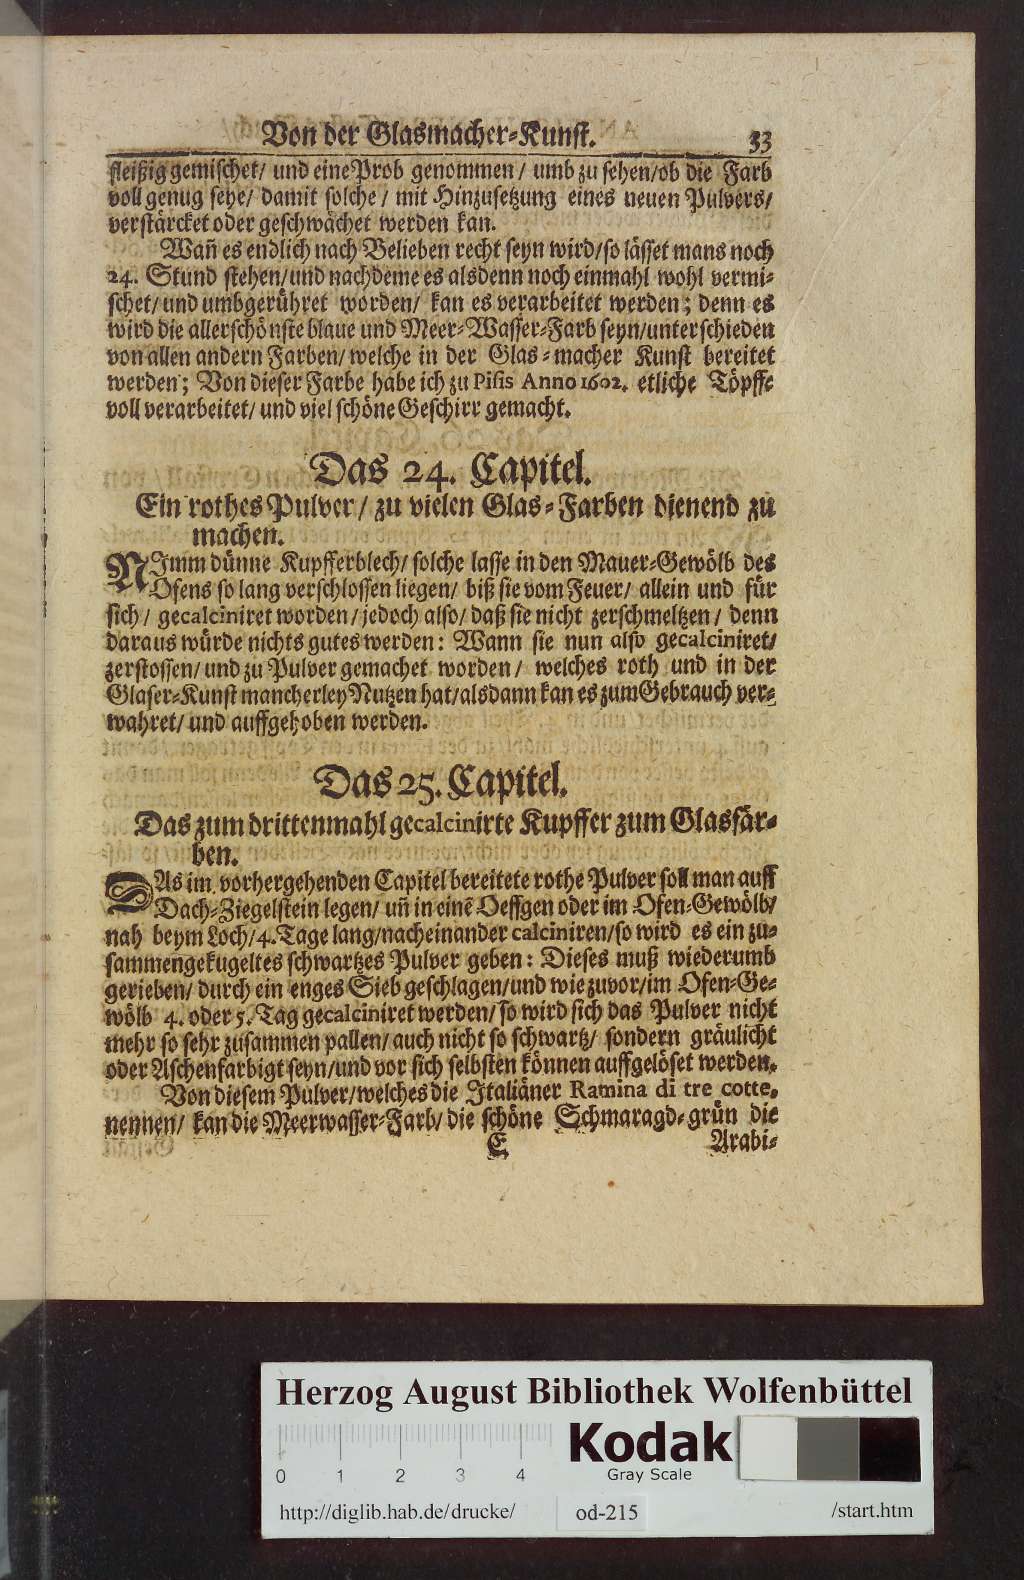 Von der Glasmacher-Kunst. 33
fleißig gemischet/ und eine Prob genommen / umb zu sehen/ob die Farb
voll genug seye/ damit solche / mit Hinzusetzung eines neuen Pulvers/
verstärcket oder geschwächet werden kan.
Wañ es endlich nach Belieben recht seyn wird/so lässet mans noch
24. Stund stehen/und nachdeme es alsdenn noch einmahl wohl vermi-
schet/ und umbgerühret worden/ kan es verarbeitet werden; denn es
wird die allerschönste blaue und Meer-Wasser-Farb seyn/unterschieden
von allen andern Farben/ welche in der Glas-macher Kunst bereitet
werden; Von dieser Farbe habe ich zu Pisis Anno 1602. etliche Töpffe
voll verarbeitet/ und viel schöne Geschirr gemacht.
Das 24. Capitel.
Ein rothes Pulver/ zu vielen Glas-Farben dienend zu
machen.
NImm dünne Kupfferblech/ solche lasse in den Mauer-Gewölb des
Ofens so lang verschlossen liegen/ biß sie vom Feuer/ allein und für
sich/ gecalciniret worden/jedoch also/ daß sie nicht zerschmeltzen/ denn
daraus würde nichts gutes werden: Wann sie nun also gecalciniret/
zerstossen/ und zu Pulver gemachet worden/ welches roth und in der
Glaser-Kunst mancherley Nutzen hat/alsdann kan es zum Gebrauch ver-
wahret/ und auffgehoben werden.
Das 25. Capitel.
Das zum drittenmahl gecalcinirte Kupffer zum Glasfär-
ben.
DAs im vorhergehenden Capitel bereitete rothe Pulver soll man auff
Dach-Ziegelstein legen/ uñ in einē Oeffgen oder im Ofen-Gewölb/
nah beym Loch/4. Tage lang/nacheinander calciniren/so wird es ein zu-
sammengekugeltes schwartzes Pulver geben: Dieses muß wiederumb
gerieben/ durch ein enges Sieb geschlagen/und wie zuvor/im Ofen-Ge-
wölb 4. oder 5. Tag gecalciniret werden/ so wird sich das Pulver nicht
mehr so sehr zusammen pallen/ auch nicht so schwartz/ sondern gräulicht
oder Aschenfarbigt seyn/und vor sich selbsten können auffgelöset werden.
Von diesem Pulver/welches die Italiäner Ramina di tre cotte.
nennen/ kan die Meerwasser-Farb/ die schöne Schmaragd-grün die
E Arabi-
Herzog August Bibliothek Wolfenbüttel
Kodak
Gray Scale
0 1 2 3 4
http://diglib.hab.de/drucke/ od-215 /start.htm